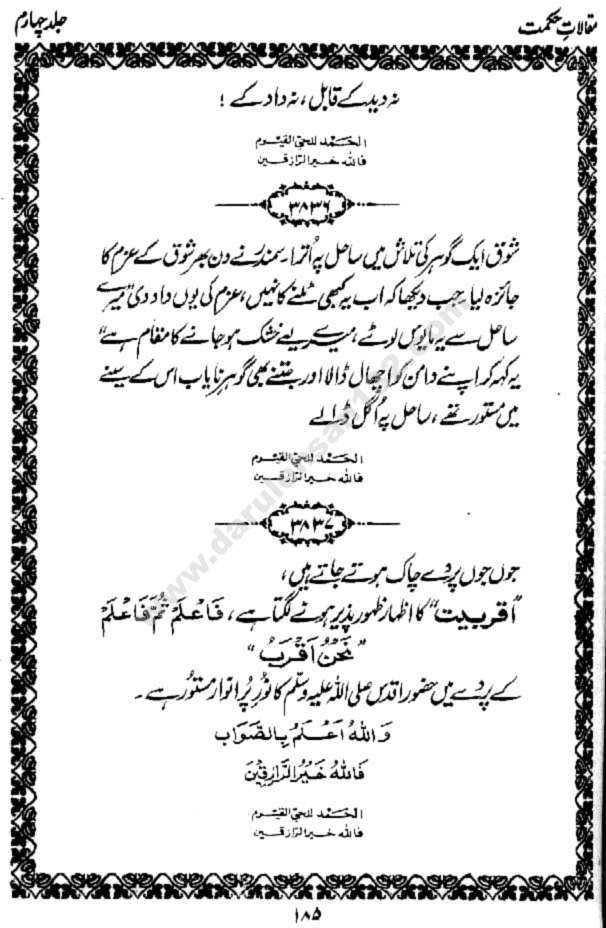 مقالاتِ حکمت
جلد چہارم
نہ دید کے قابل، نہ داد کے !
الحمد للحی القیوم
فاللہ خیر الرازقین
۳۸۳۶
شوق ایک گوہر کی تلاش میں ساحل پہ اُترا۔ سمندر نے دن بھر شوق کے عزم کا
جائزہ لیا۔ جب دیکھا کہ اب یہ کبھی ٹلنے کا نہیں، عزم کی یوں داد دی ”میرے
ساحل سے یہ مایوس لوٹے، میرے لیے خشک ہو جانے کا مقام ہے“
یہ کہہ کر اپنے دامن کو اچھال ڈالا اور جتنے بھی گوہر نایاب اس کے سینے
میں مستور تھے، ساحل پہ اُگل ڈالے
الحمد للحی القیوم
فاللہ خیر الرازقین
۳۸۳۷
جوں جوں پردے چاک ہوتے جاتے ہیں،
”اقربیت“ کا اظہار ظہور پذیر ہونے لگتا ہے، فَاعْلَمْ ثُمَّ فَاعْلَمْ
”نَحْنُ اَقْرَبُ“
کے پردے میں حضور اقدس صلی اللہ علیہ وسلم کا نُورِ پُر انوار مستُور ہے۔
وَاللهُ اَعْلَمُ بِالصَّوَاب
فَاللهُ خَيْرُ الرَّازِقِيْنَ
الحمد للحی القیوم
فاللہ خیر الرازقین
۱۸۵